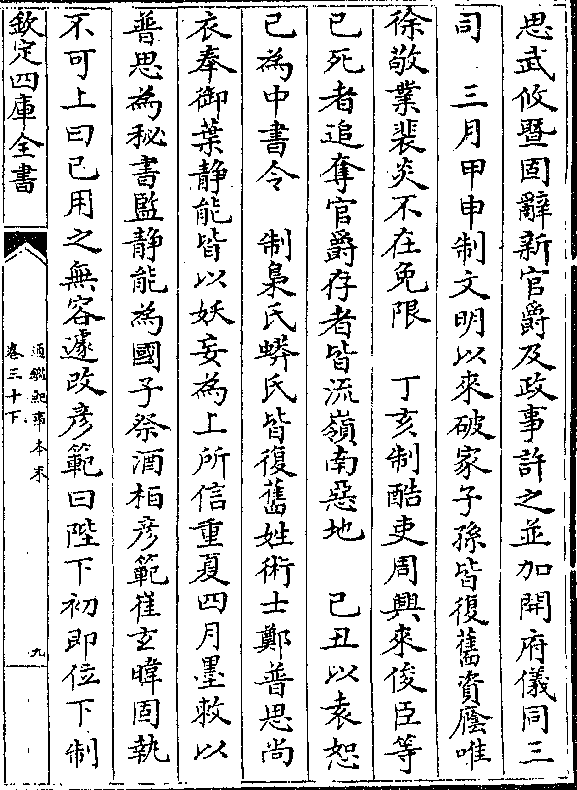 思武攸暨固辭新官爵及政事許之並加開府儀同三
司　三月甲申制文明以來破家子孫皆復舊資廕唯
徐敬業裴炎不在免限　丁亥制酷吏周興來俊臣等
已死者追奪官爵存者皆流嶺南惡地　己丑以袁恕
己為中書令　制梟氏蟒氏皆復舊姓術士鄭普思尚
衣奉御葉静能皆以妖妄為上所信重夏四月墨敕以
普思為秘書監静能為國子祭酒桓彦範崔玄暐固執
不可上曰已用之無容遽改彦範曰陛下初即位下制
欽定四庫全書
通鑑紀事本末
卷三十下
九